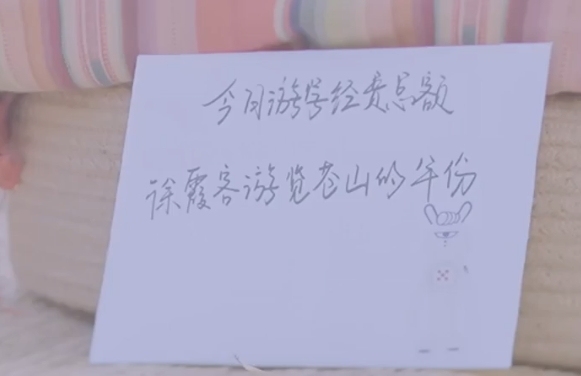 今日游学经费总额
徐霞客游览苍山的年份